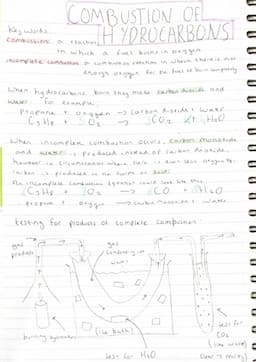 COMBUSTION OF
HYDROCARBONS
Key words
Combustion: a reaction
in which a fuel burns in oxygen.
Incomplete combustion: a combustion reaction in which there is not
enough oxygen for the fuel to burn
When hydrocarbons burn they make carbon dioxide and
water for example:
Propane + oxygen → carbon dioxide + water
C3H8 + O2 → CO2 + H2O
When incomplete combustion occurs, carbon monoxide
and water is produced instead of carbon dioxide.
However in circumstances where there is even less oxygen,
carbon is produced in the form of soot.
The incomplete combustion equation could look like this:
C3H8 + O2 CO + H2O
propane + oxygen → carbon monoxide + water
testing for products of complete combustion:
gas
products
gas
condensing
water
burning
(ice bath)
test for H2O
test for
CO2
(lime water)
clear → milky